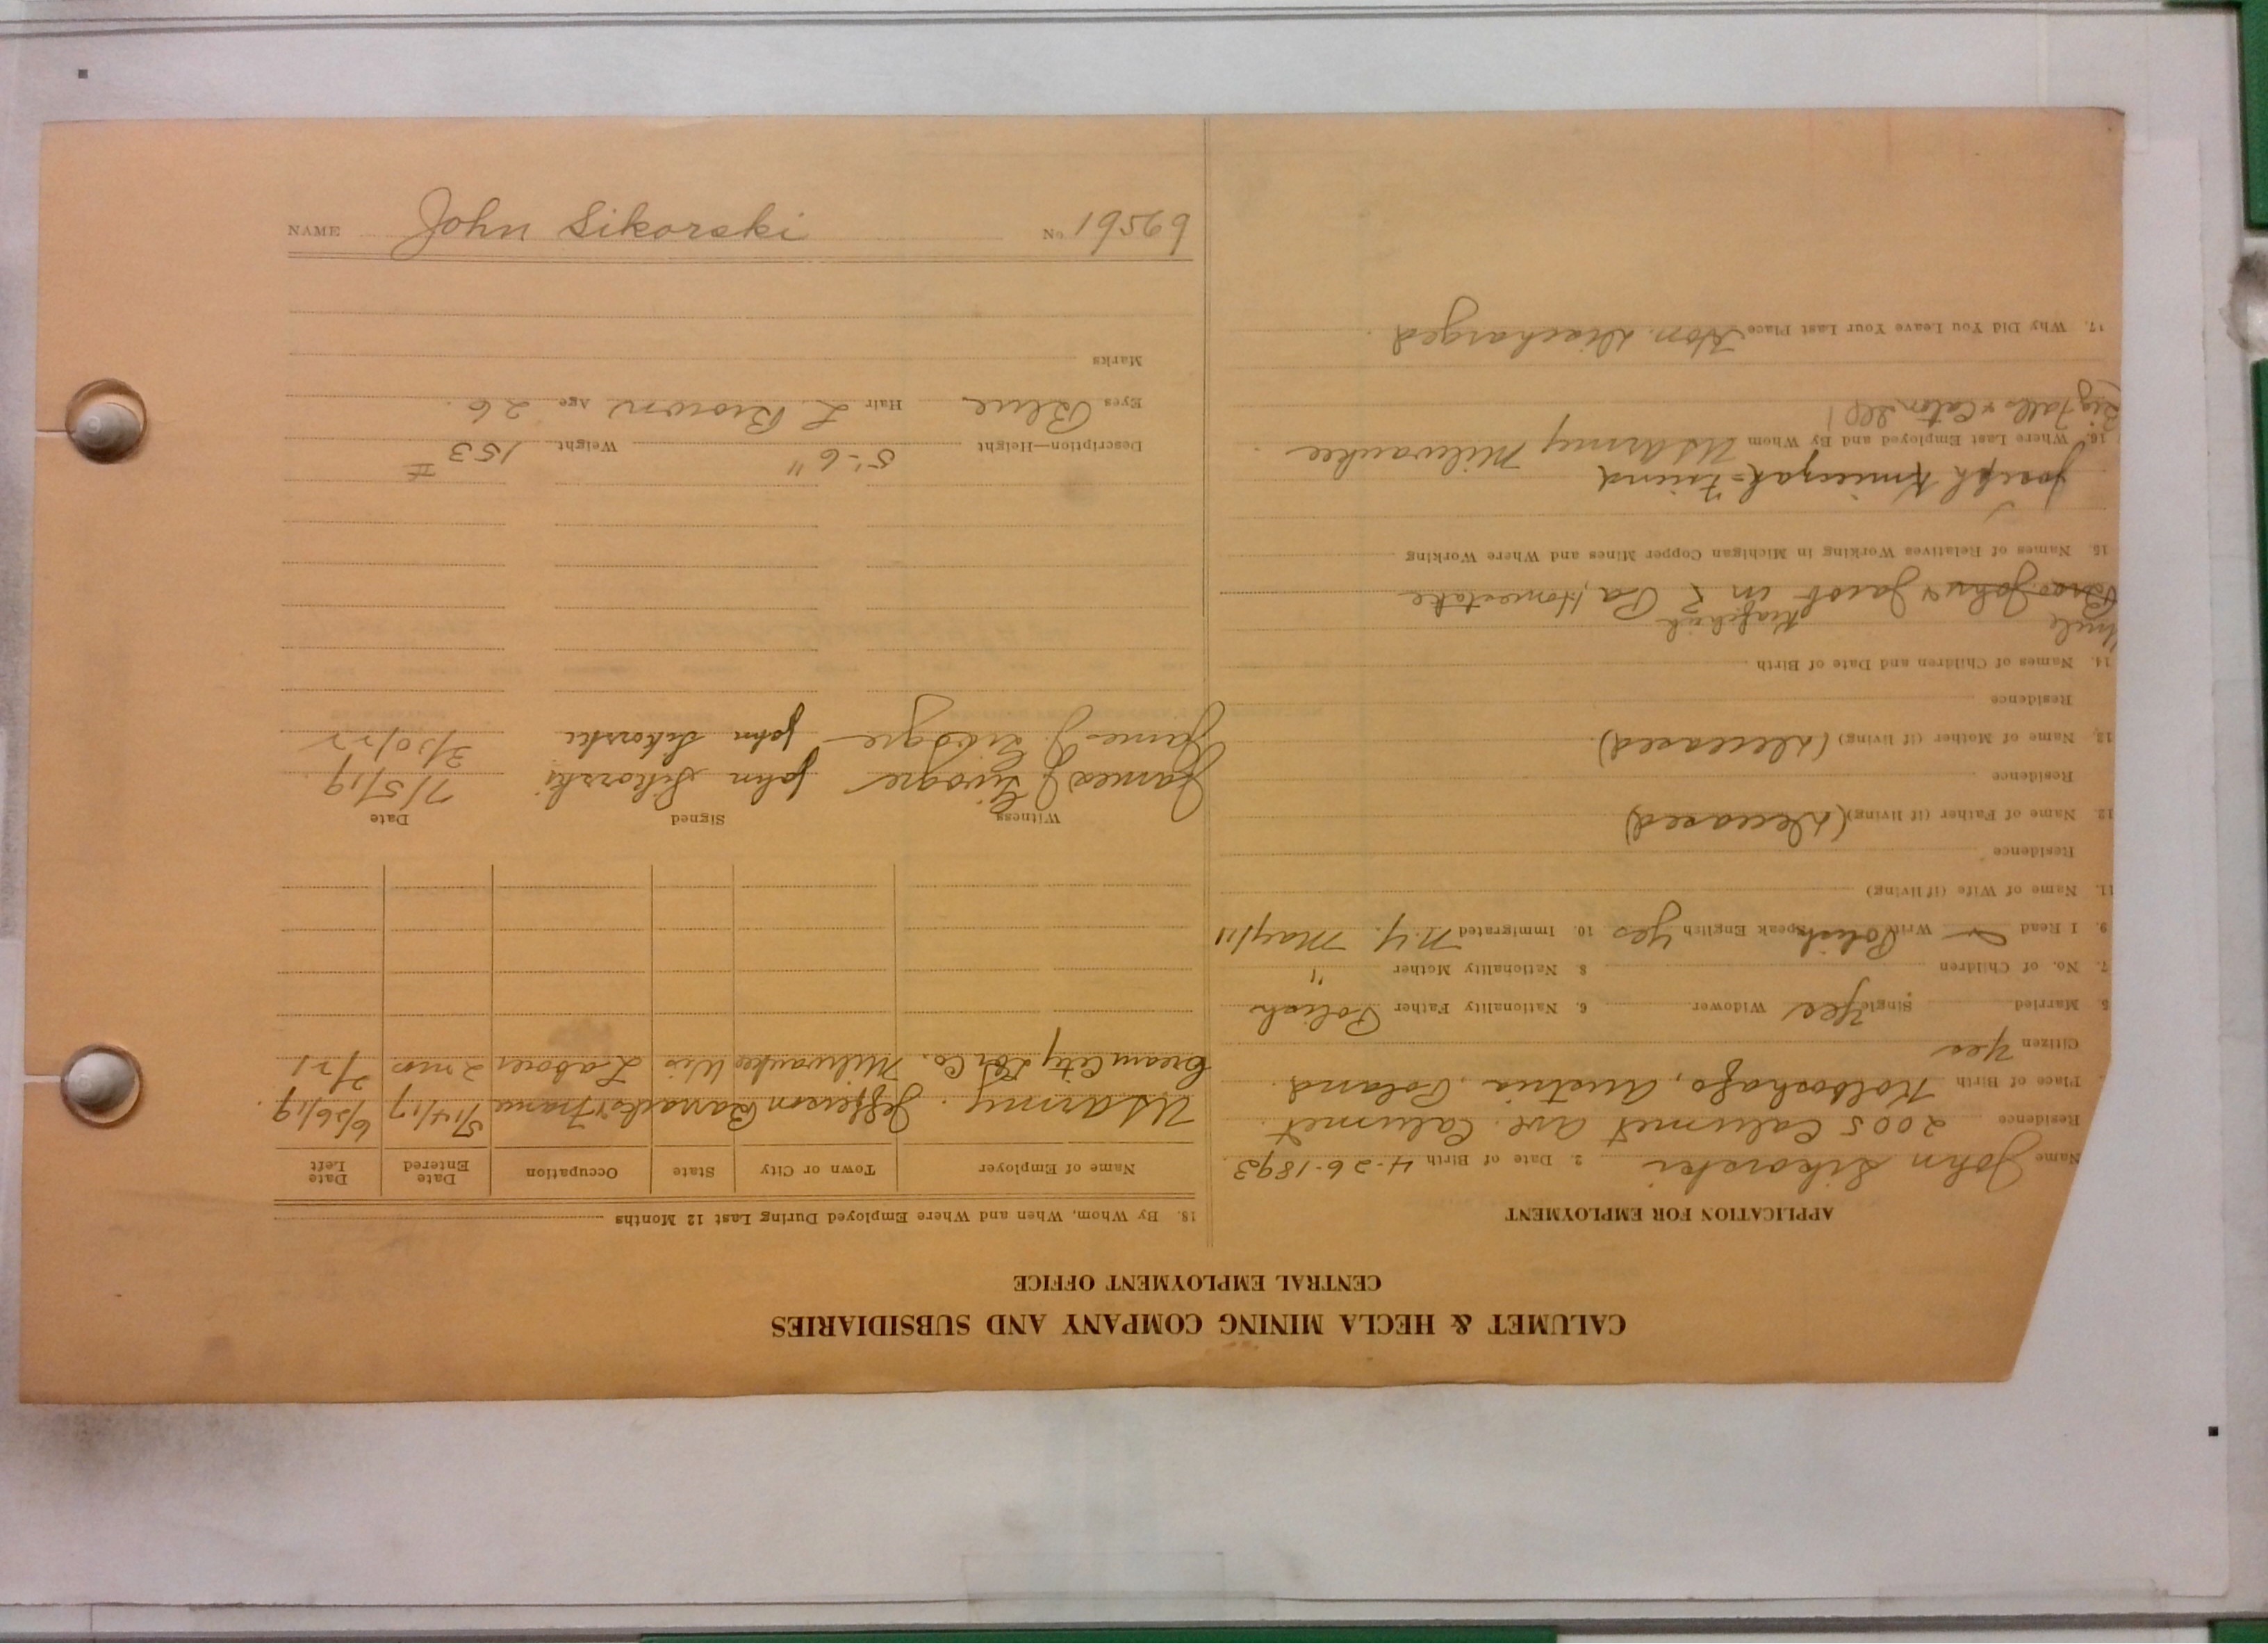 CALUMET & HECLA MINING COMPANY AND SUBSIDIARIES
CENTRAL EMPLOYMENT OFFICE
APPLICATION FOR EMPLOYMENT
Name John Sikorski 2. Date of Birth 4-26-1893
Residence 2005 Calumet Ave. Calumet
Place of Birth Austria, Poland
Citizen Yes
5. Married Single Yes Widower 6. Nationality Father Polish
7. No. of Children 8. Nationality Mother "
9. I Read Write Polish Speak English Yes 10. Immigrated N.Y. May/11
11. Name of Wife (if living)
Residence
12. Name of Father (if living) (Deceased)
Residence
13. Name of Mother (if living) (Deceased)
Residence
14. Names of Children and Date of Birth
Uncle
Bros. John & Jacob in Pa, Homestake
15. Names of Relatives Working in Michigan Copper Mines and Where Working
Joseph = Friend
16. Where Last Employed and By Whom US Army Milwaukee
17. Why Did You Leave Your Last Place Hon. Discharged
18. By Whom, When and Where Employed During Last 12 Months
Name of Employer Town or City State Occupation Date Entered Date Left
US Army. Jefferson Barracks & France 5/14/17 6/26/19.
Cream City Co. Milwaukee Wis Laborer 2 mos 2/21
Witness Signed Date
James J. John Sikorski 7/5/19
James J. John Sikorski 3/30/22
Description—Height 5'-6" Weight 153 #
Eyes Blue Hair L Brown Age 26.
Marks
NAME John Sikorski No 19569